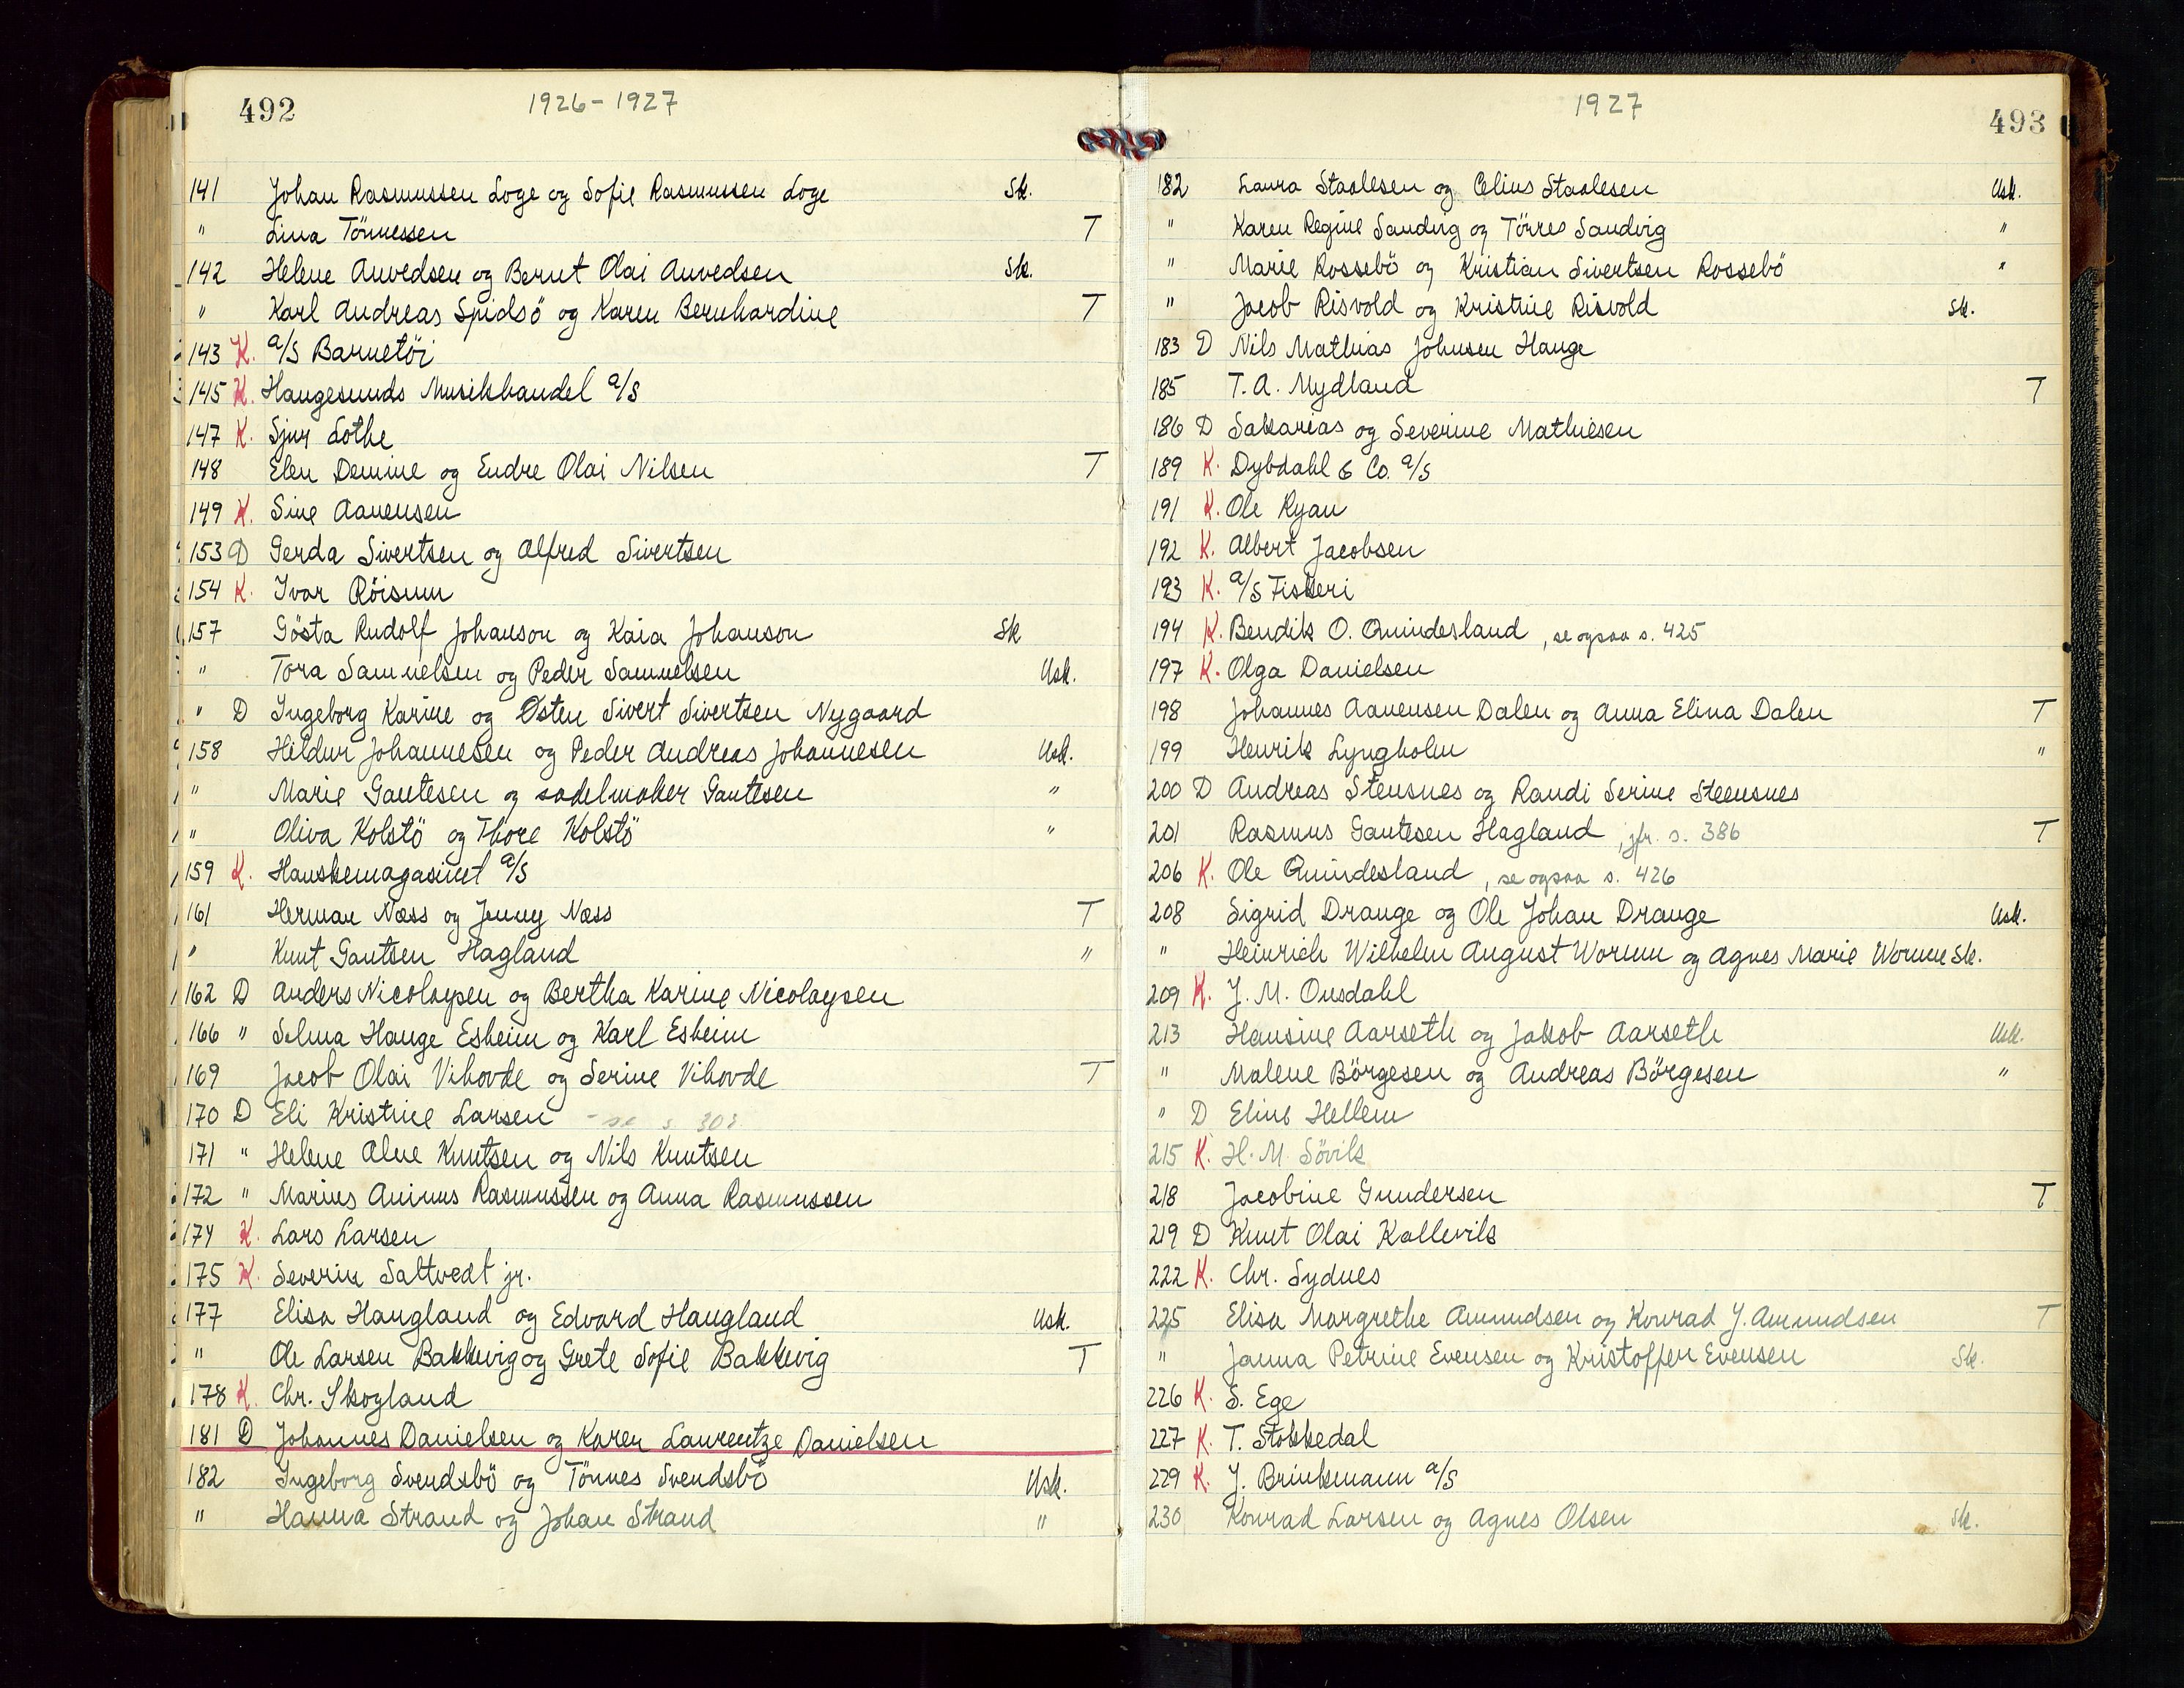 492
1926-1927
141 Johan Rasmussen Loge og Sofie Rasmussen Loge Sk.
" Lina Tönnessen T
142 Helene Anvedsen og Bernt Olai Anvedsen Sk.
" Karl Andreas Spidsö og Karen Bernhardine T
143 K. a/s Barnetöi
145 K. Haugesunds Musikhandel a/s
147 K. Sjur Lothe
148 Elen Demine og Endre Olai Nilsen T
149 K. Sine Aanensen
153 D Gerda Sivertsen og Alfred Sivertsen
154 K. Ivar Röisum
157 Gösta Rudolf Johanson og Kaia Johanson Sk
" Tora Samuelsen og Peder Samuelsen Usk.
" D Ingeborg Karine og Østen Sivert Sivertsen Nygaard
158 Hildur Johannesen og Peder Andreas Johannesen Usk.
" Marie Gautesen og sadelmaker Gautesen "
" Oliva Kolstö og Thore Kolstö "
159 K. Hanskemagasinet a/s
161 Herman Næss og Jenny Næss T
" Knut Gautsen Hagland "
162 D Anders Nicolaysen og Bertha Karine Nicolaysen
166 " Selma Hauge Esheim og Karl Esheim
169 Jacob Olai Vihovde og Serine Vihovde T
170 D Eli Kristine Larsen - se s. 303
171 " Helene Alne Knutsen og Nils Knutsen
172 " Marius Aninus Rasmussen og Anna Rasmussen
174 K. Lars Larsen
175 K. Severin Saltvedt jr.
177 Elisa Haugland og Edvard Haugland Usk.
" Ole Larsen Bakkevig og Grete Sofie Bakkevig T
178 K. Chr. Skogland
181 D Johannes Danielsen og Karen Laurentze Danielsen
182 Ingeborg Svendsbö og Tönnes Svendsbö Usk.
" Hanna Strand og Johan Strand "
1927
493
182 Laura Staalesen og Celius Staalesen Usk.
" Karen Regine Sandvig og Törres Sandvig "
" Marie Rossebö og Kristian Sivertsen Rossebö "
" Jacob Risvold og Kristine Risvold Sk.
183 D Nils Mathias Johnsen Hauge
185 T. A. Mydland T
186 D Sakarias og Severine Mathiesen
189 K. Dybdahl & Co. a/s
191 K. Ole Ryan
192 K. Albert Jacobsen
193 K. a/s Fiskeri
194 K. Bendik O. Qvindesland, se ogsaa s. 425
197 K. Olga Danielsen
198 Johannes Aanensen Dalen og Anna Elina Dalen T
199 Henrik Lyngholm "
200 D Andreas Stensnes og Randi Serine Steensnes
201 Rasmus Gautesen Hagland, jfr. s. 386 T
206 K. Ole Qvindesland, se ogsaa s. 426
208 Sigrid Drange og Ole Johan Drange Usk.
" Heinrich Wilhelm August Worum og Agnes Marie Worum Sk.
209 K. J. M. Onsdahl
213 Hansine Aarseth og Jakob Aarseth Usk.
" Malene Börgesen og Andreas Börgesen "
" D Eline Hellem
215 K. H. M. Sövik
218 Jacobine Gundersen T
219 D Knut Olai Kallevik
222 K. Chr. Sydnes
225 Elisa Margrethe Amundsen og Konrad J. Amundsen T
" Janna Petrine Evensen og Kristoffer Evensen Sk.
226 K. S. Ege
227 K. T. Stokkedal
229 K. J. Brinkmann a/s
230 Konrad Larsen og Agnes Olsen Sk.